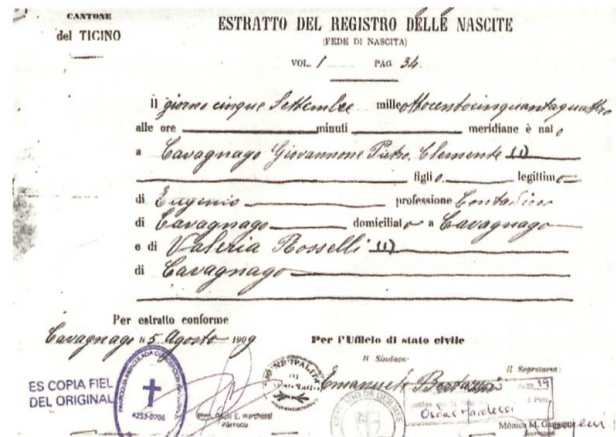 CANTONE
del TICINO
ESTRATTO DEL REGISTRO DELLE NASCITE
(FEDE DI NASCITA)
VOL. 1 PAG 34
Il giorno cinque Settembre mille ottocentocinquantaquattro
alle ore minuti meridiane è nato
a Cavagnago Giovannone Pietro, Clemente (1)
figlio legittimo
di Eugenio professione Contadino
di Cavagnago domiciliato a Cavagnago
e di Valeria Rosselli (1)
di Cavagnago
Per estratto conforme
Cavagnago li 5 Agosto 1909
Per l'Ufficio di stato civile
Il Sindaco:
Il Segretario:
Emanuele
ES COPIA FIEL
DEL ORIGINAL
4253-0706
Párroco
Mónica M.